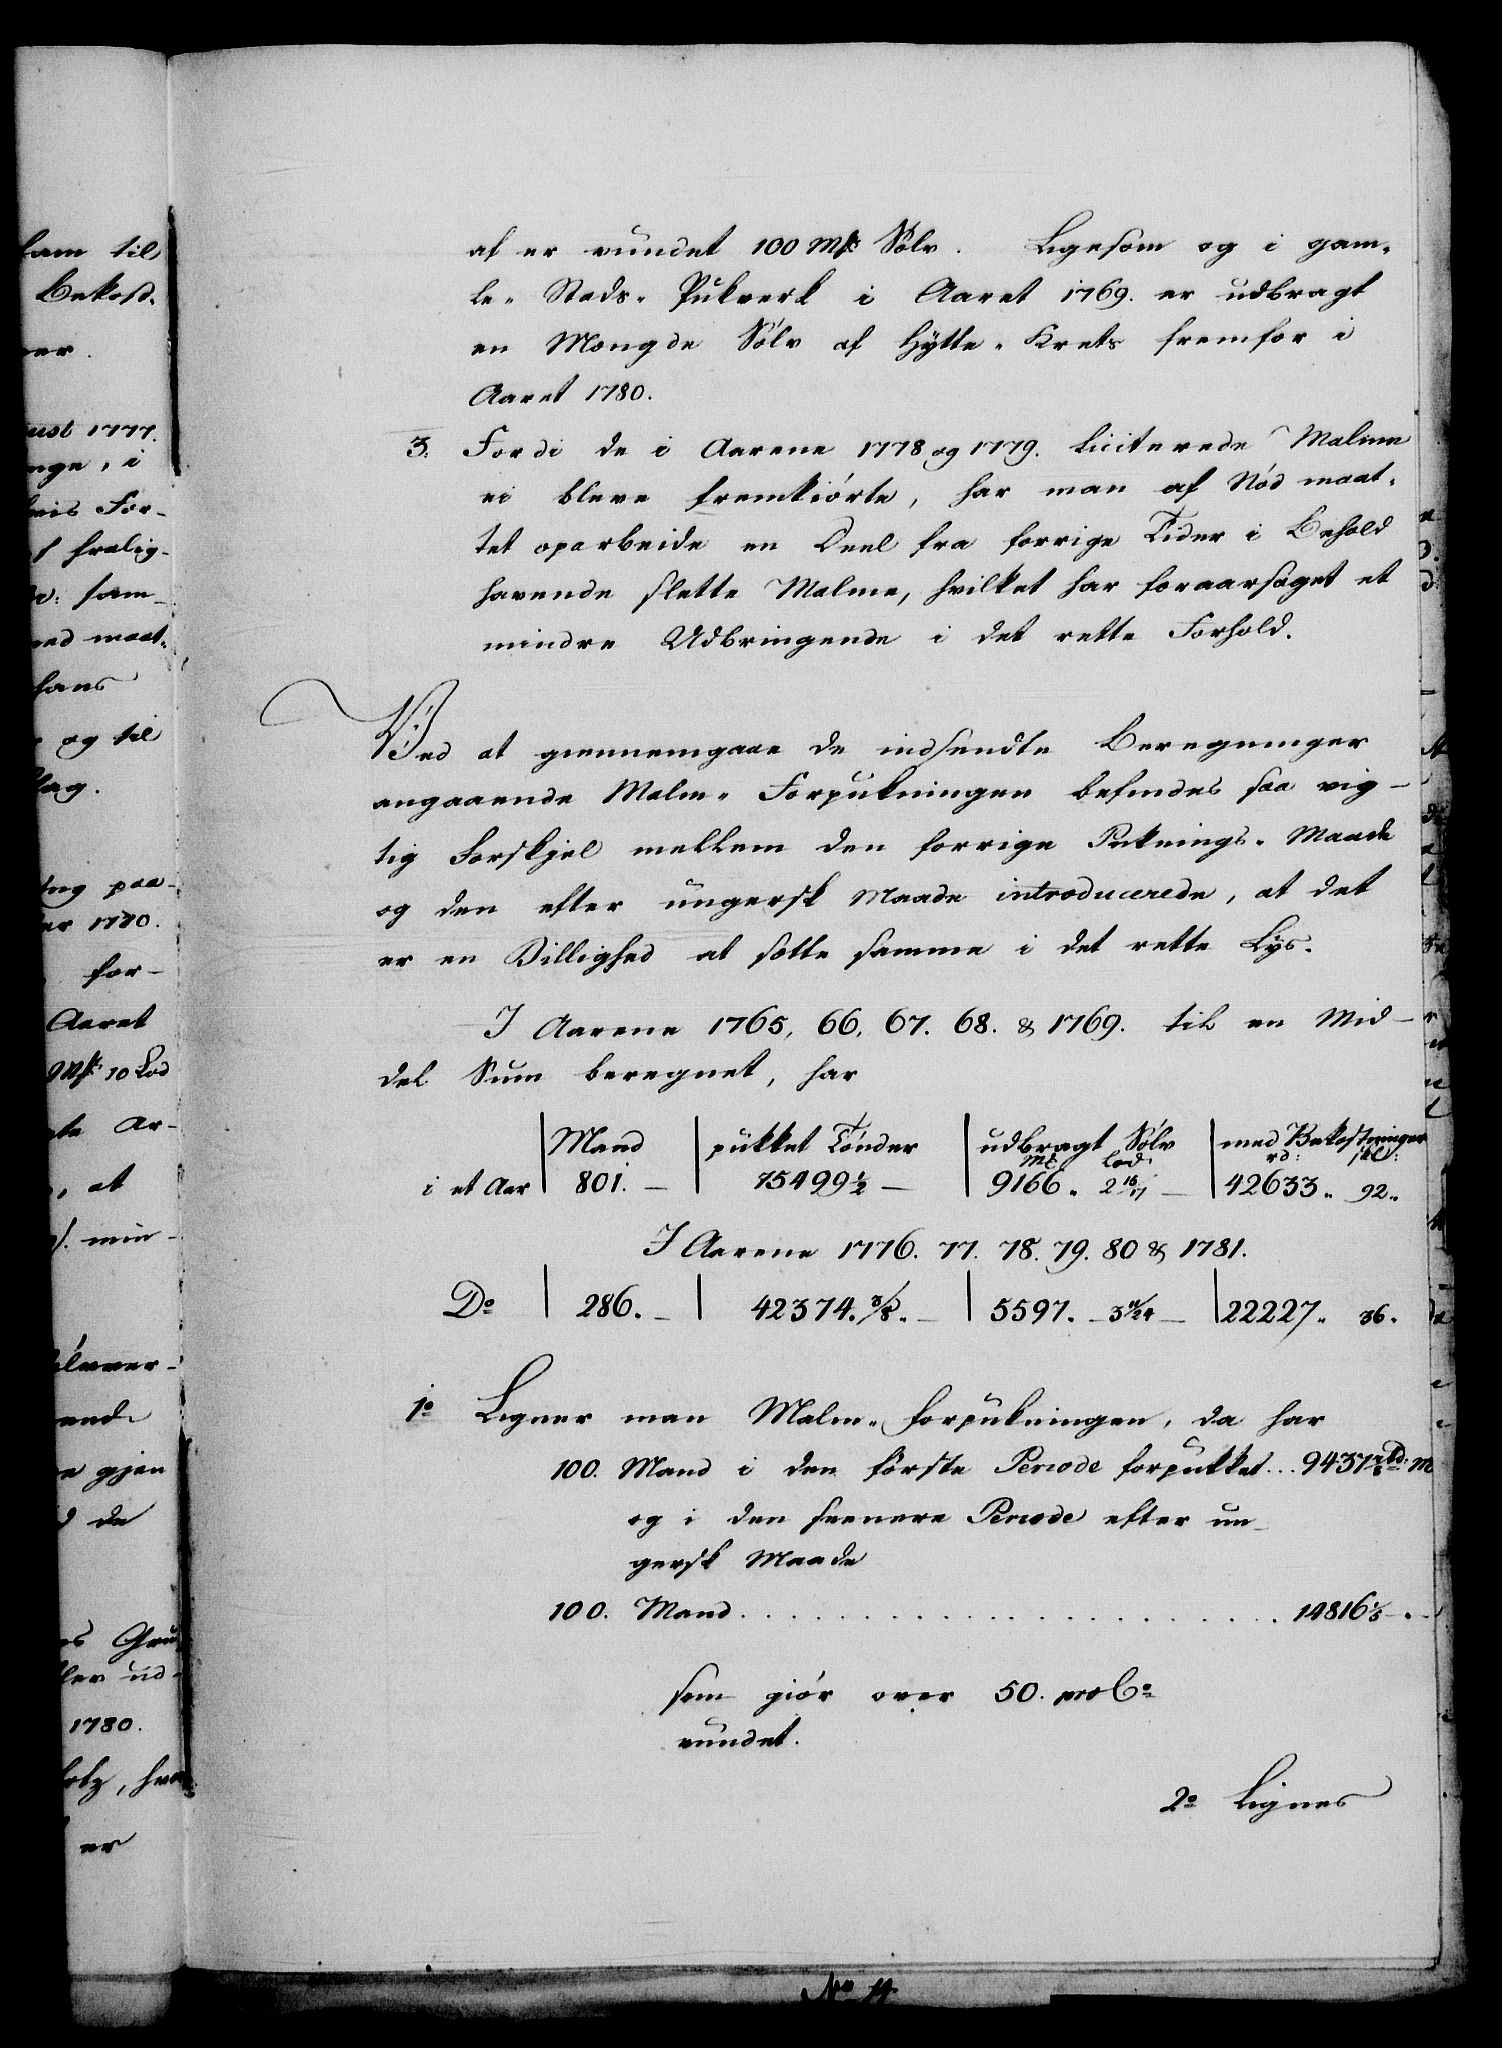 af er vundet 100 Mk: Sölv. Ligesom og i gam-
le- Stads- Pukverk i Aaret 1769. er udbragt
en Mængde Sölv af Hytte- Krets fremfor i
Aaret 1780.
3. Fordi de i Aarene 1778 og 1779. liciterede Malme
ei bleve fremkiörte, har man af Nöd maat-
tet oparbeide en Deel fra forrige Tider i Behold
havende slette Malme, hvilket har foraarsaget et
mindre Udbringende i det rette Forhold.
Ved at giennemgaae de indsendte Beregninger
angaaende Malm- Forpukningen befindes saa vig-
tig Forskjel mellem den forrige Puknings- Maade
og den efter ungersk Maade introducerede, at det
er en Billighed at sætte samme i det rette Lys.
I Aarene 1765, 66, 67. 68. & 1769. til en Mid-
del Sum beregnet, har
Mand | pukket Tönder | udbragt Sölv | med Bekostninger
Mk Lod rd: skl:
i et Aar | 801. — | 75499 1/2 — | 9166. 2 16/17 — | 42633. 92.
I Aarene 1776. 77. 78. 79. 80 & 1781.
Do | 286. — | 42374. 3/8. — | 5597. — 3 11/24 — | 22227. 36.
1o Ligner man Malm- forpukningen, da har
100. Mand i den förste Periode forpukket... 9437
og i den seenere Periode efter un-
gersk Maade
100. Mand . . . . . . . . . . . . . . . . . . . . . . 14816 1/3 —
som giör over 50. pro Co
vundet.
2o Lignes
No 14